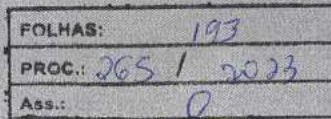 FOLHAS: 193
PROC.: 265 / 2023
Ass.: